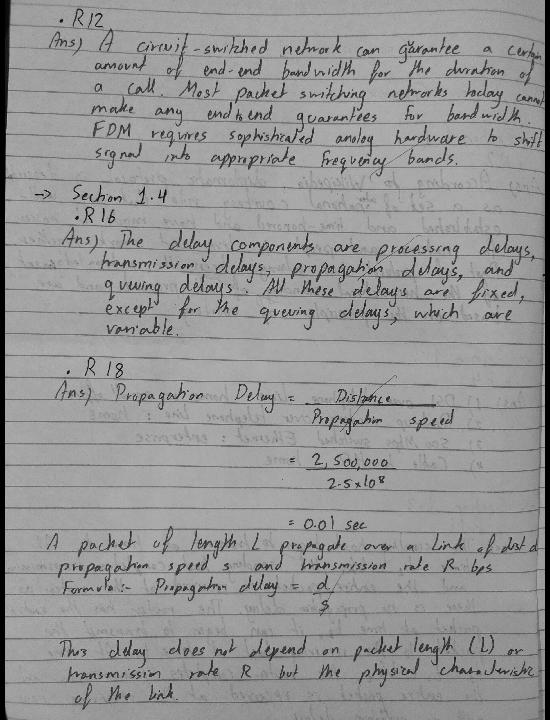 • R12
Ans) A circuit-switched network can garantee a certain
amount of end-end bandwidth for the duration of
a call. Most packet switching networks today cannot
make any end to end guarantees for bandwidth.
FDM requires sophisticated analog hardware to shift
signal into appropriate frequency bands.
→ Section 1.4
• R16
Ans) The delay components are processing delays,
transmission delays, propagation delays, and
queuing delays. All these delays are fixed,
except for the queuing delays, which are
variable.
• R 18
Ans) Propagation Delay = Distance
Propagation speed
= 2,500,000
2.5x10⁸
= 0.01 sec
A packet of length L propagate over a link of dist d
propagation speed s and transmission rate R bps
Formula:- Propagation delay = d
s
This delay does not depend on packet length (L) or
transmission rate R but the physical characteristic
of the link.